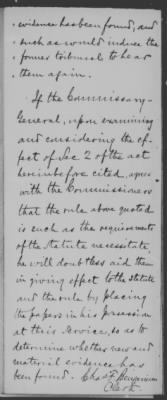 evidence has been found, and
such as would induce the
former tribunals to hear
them again.
If the Commissary-
General, upon examining
and considering the ef-
fect of Sec 2 of the act
hereinbefore cited, agrees
with the Commissioner
that the rule above quoted
is such as the requirements
of the statute necessitate,
he will doubtless aid them
in giving effect to the statute
and the rule by placing
the papers in his possession
at their service, so as to
determine whether new and
material evidence has
been found. Chas. F. Benjamin
Clerk.